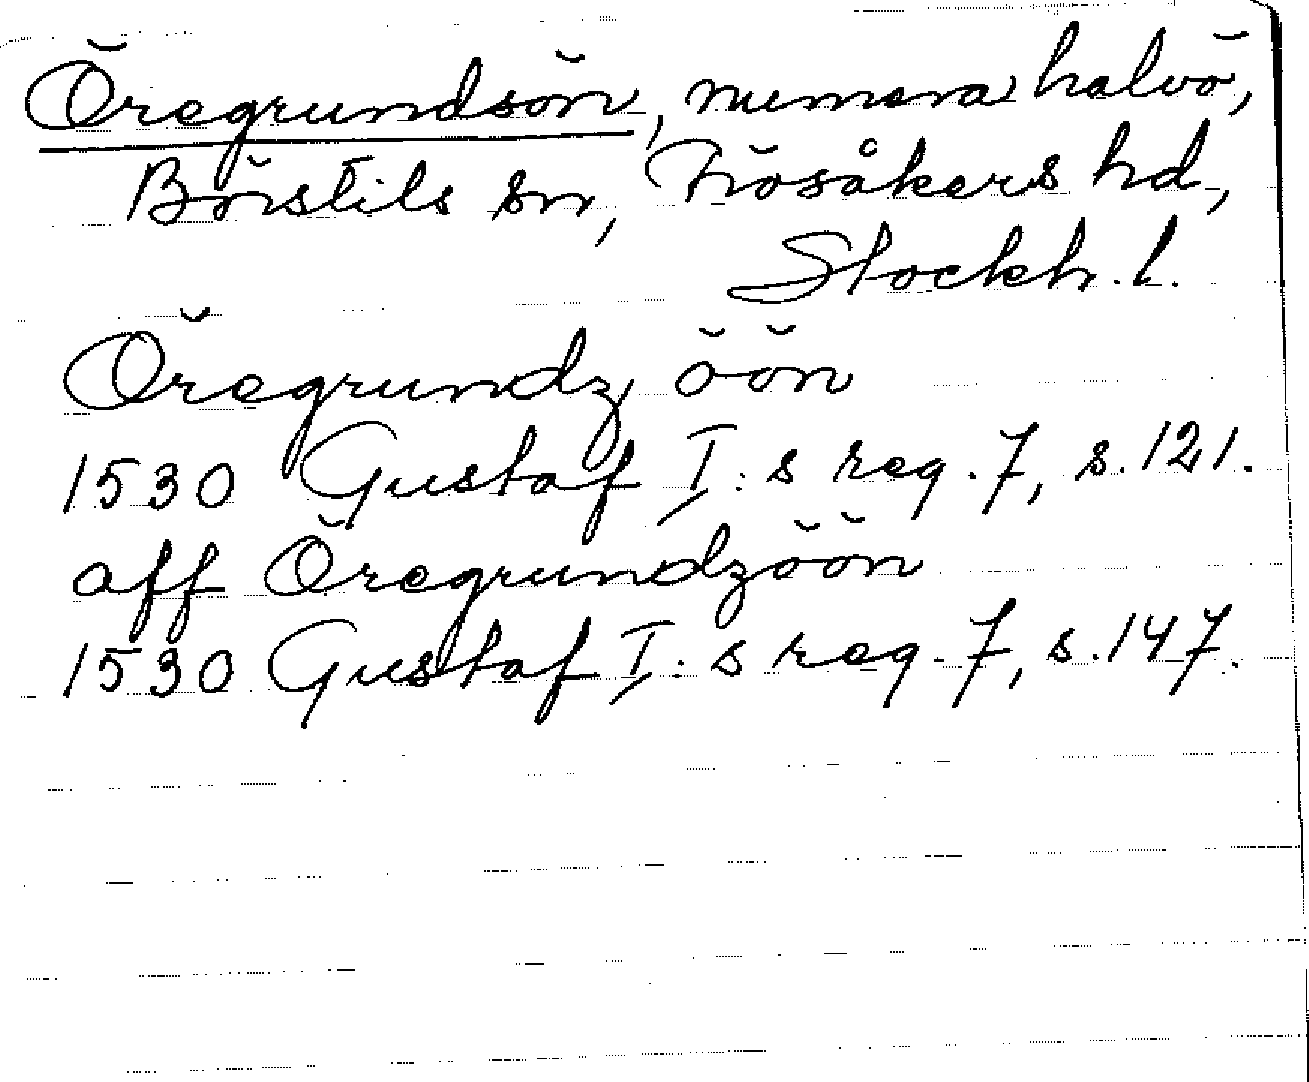 Öregrundsön, numera halvö,
Börstils sn, Frösåkers hd,
Stockh. l.
Öregrundz öön
1530 Gustaf I:s reg. 7, s. 121.
aff Öregrundzöön
1530 Gustaf I:s reg. 7, s. 147.